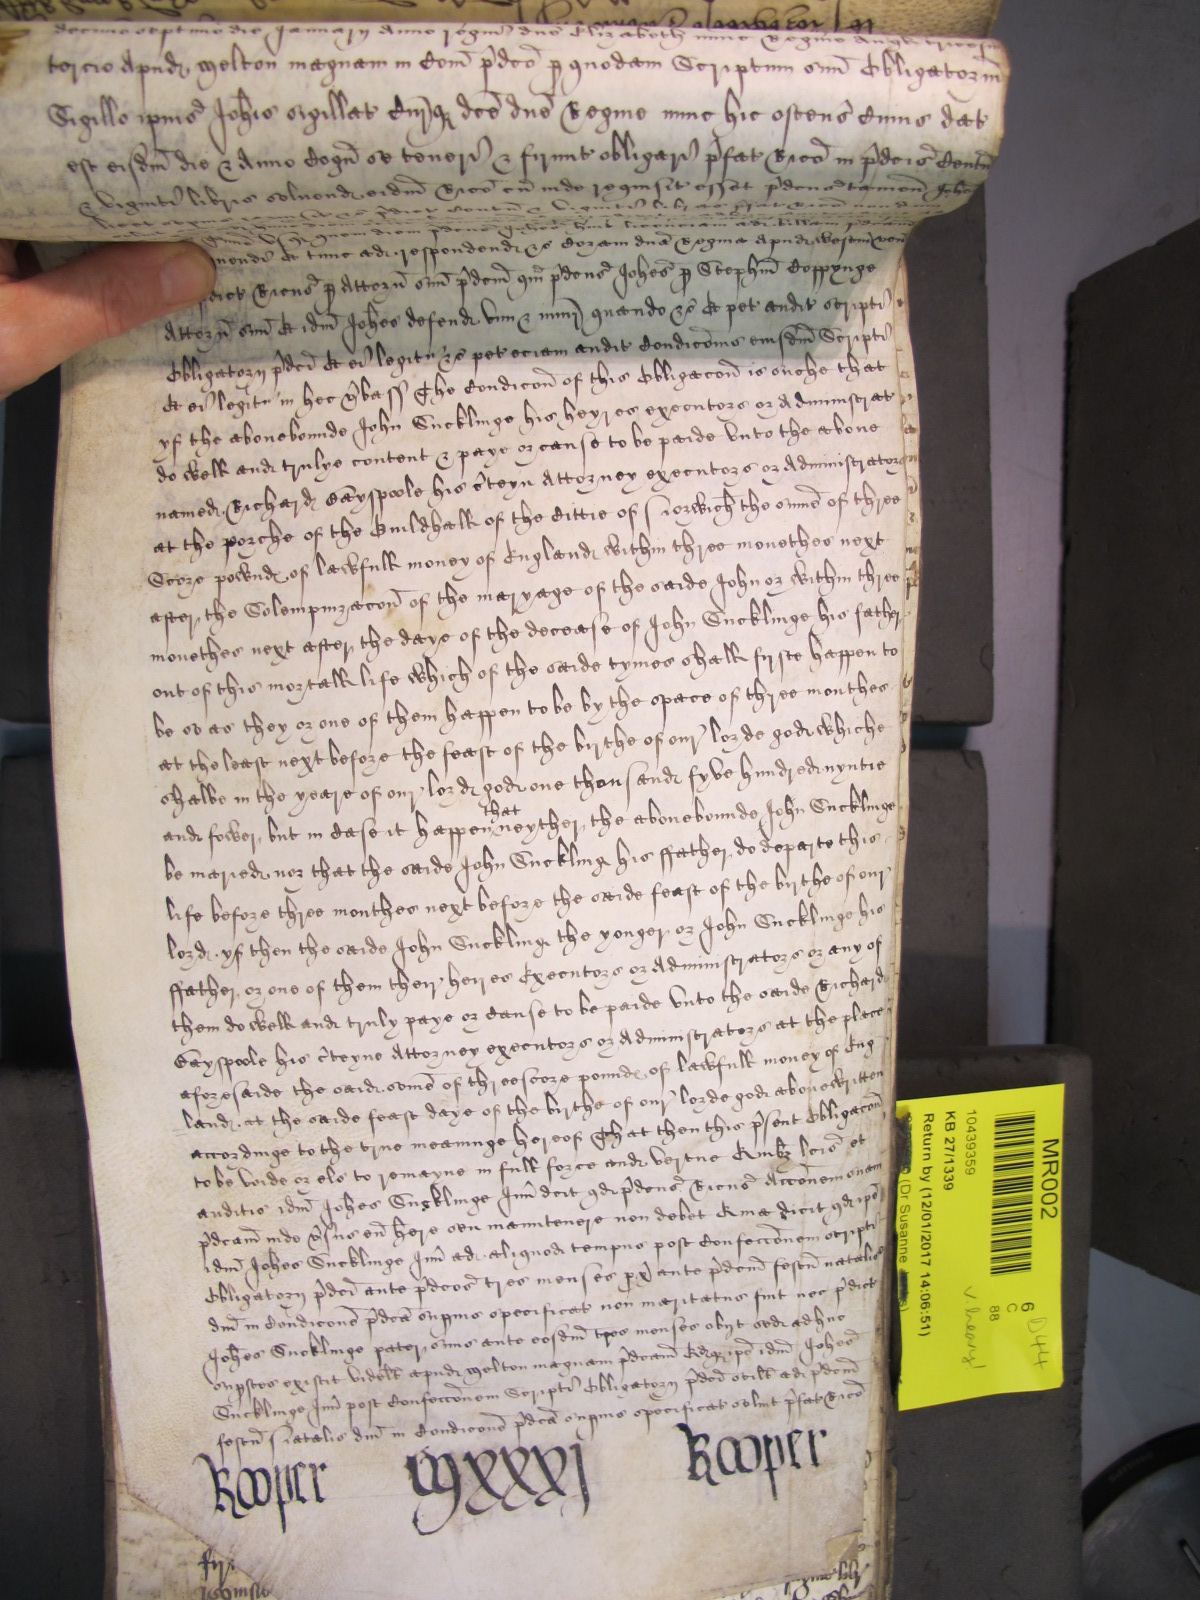 decimo septimo die Januarij Anno regni dne Elizabeth nunc Regine Anglie tricesimo
tercio Apud Melton magnam in Com pdco p quodam Scriptum suu Obligatorm
Sigillo ipius Johis sigillat Curq dce dne Regine nunc hic ostens Cuius dat
est eisdm die & Anno Cogn se teneri & firmit obligari pfat Rico in pdcis Centu
& viginti libris solvend eidm Rico cu inde requisit esset pdcus tamen Johes
respondend &c Coram dna Regina Apud Westm ven
pdict Ricus p Attorn suu pdcm qm pdcus Johes p Stephm Coppynge
Attorn suu Et idm Johes defend vim & iniur quando &c Et pet audit scripti
Obligatorij pdci Et ei legitr &c pet eciam audit Condicois eiusdm Scripti
Et ei legitr in hec vba ss The Condicon of this Obligacon is suche that
yf the abovebounde John Sucklinge his heyres executors or Administrat
do well and trulye content & paye or cause to be paide unto the above
named Richard Gayspoole his cteyn Attorney executors or Administrators
at the porche of the Guildhall of the Cittie of Norwich the sume of three
Score pownd of lawfull money of England within three monethes next
after the Solempnizacon of the maryage of the saide John or within three
monethes next after the daye of the decease of John Sucklinge his father
out of this mortall life which of the saide tymes shall fyrste happen to
be so as they or one of them happen to be by the space of three monthes
at the least next before the feast of the birthe of our lorde god whiche
shalbe in the yeare of our lord god one thousand fyve hundred nyntie
and fower, but in Case it happen that neyther the abovebounde John Sucklinge
be maried nor that the saide John Suckling his ffather do departe this
life before three monthes next before the saide feast of the birthe of our
lord yf then the saide John Suckling the yonger or John Sucklinge his
ffather or one of them their heires Executors or Administrators or any of
them do well and truly paye or Cause to be paide unto the saide Richard
Gayspoole his cteyne Attorney executors or Administrators at the place
aforesaide the said some of threescore pounde of lawfull money of Eng
land at the saide feast daye of the birthe of our lorde god abovewritten
accordinge to the true meaninge hereof That then this psent Obligacon
to be voide or els to remayne in full force and vertue Quibz lcis et
auditis idm Johes Sucklinge Junr dcit qd pdcus Ricus Acconem suam
pdcam inde vsus eu here seu manutenere non debet Quia dicit qd ipe
idm Johes Sucklinge Junr ad aliquod tempus post Confeccionem scripti
Obligatorij pdci ante pdcos tres menses px ante pdcm festu natalis
dni in Condicone pdca supius specificat non maritatus fuit nec pdict
Johes Sucklinge pater suus ante eosdm tres menses obijt sed adhuc
supstes existit videlt apud Melton magnam pdcam Et qd ipe idm Johes
Sucklinge Junr post Confeccionem Scripti Obligatorij pdci scilt ad pdcm
festu Natalis dni in Condicone pdca supius specificat solvit pfat Rico
Rooper mxxxj Rooper
MR002
10439359
KB 27/1339
Return by (12/01/2017 14:06:51)
(Dr Susanne
6
C
88
D44